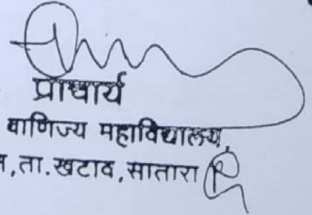 प्राचार्य
वाणिज्य महाविद्यालय,
ता.खटाव,सातारा